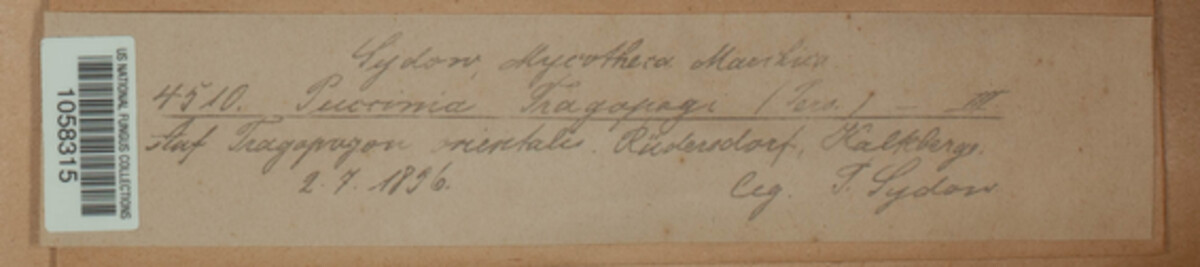 US NATIONAL FUNGUS COLLECTIONS
1058315
Sydow, Mycotheca Marchica
4510. Puccinia Tragopogi (Pers.) — III
Auf Tragopogon orientalis. Rüdersdorf, Kalkberge.
2. 7. 1896.
leg. P. Sydow